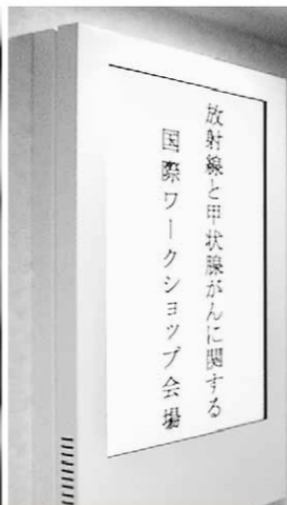 放射線と甲状腺がんに関する
国際ワークショップ会場